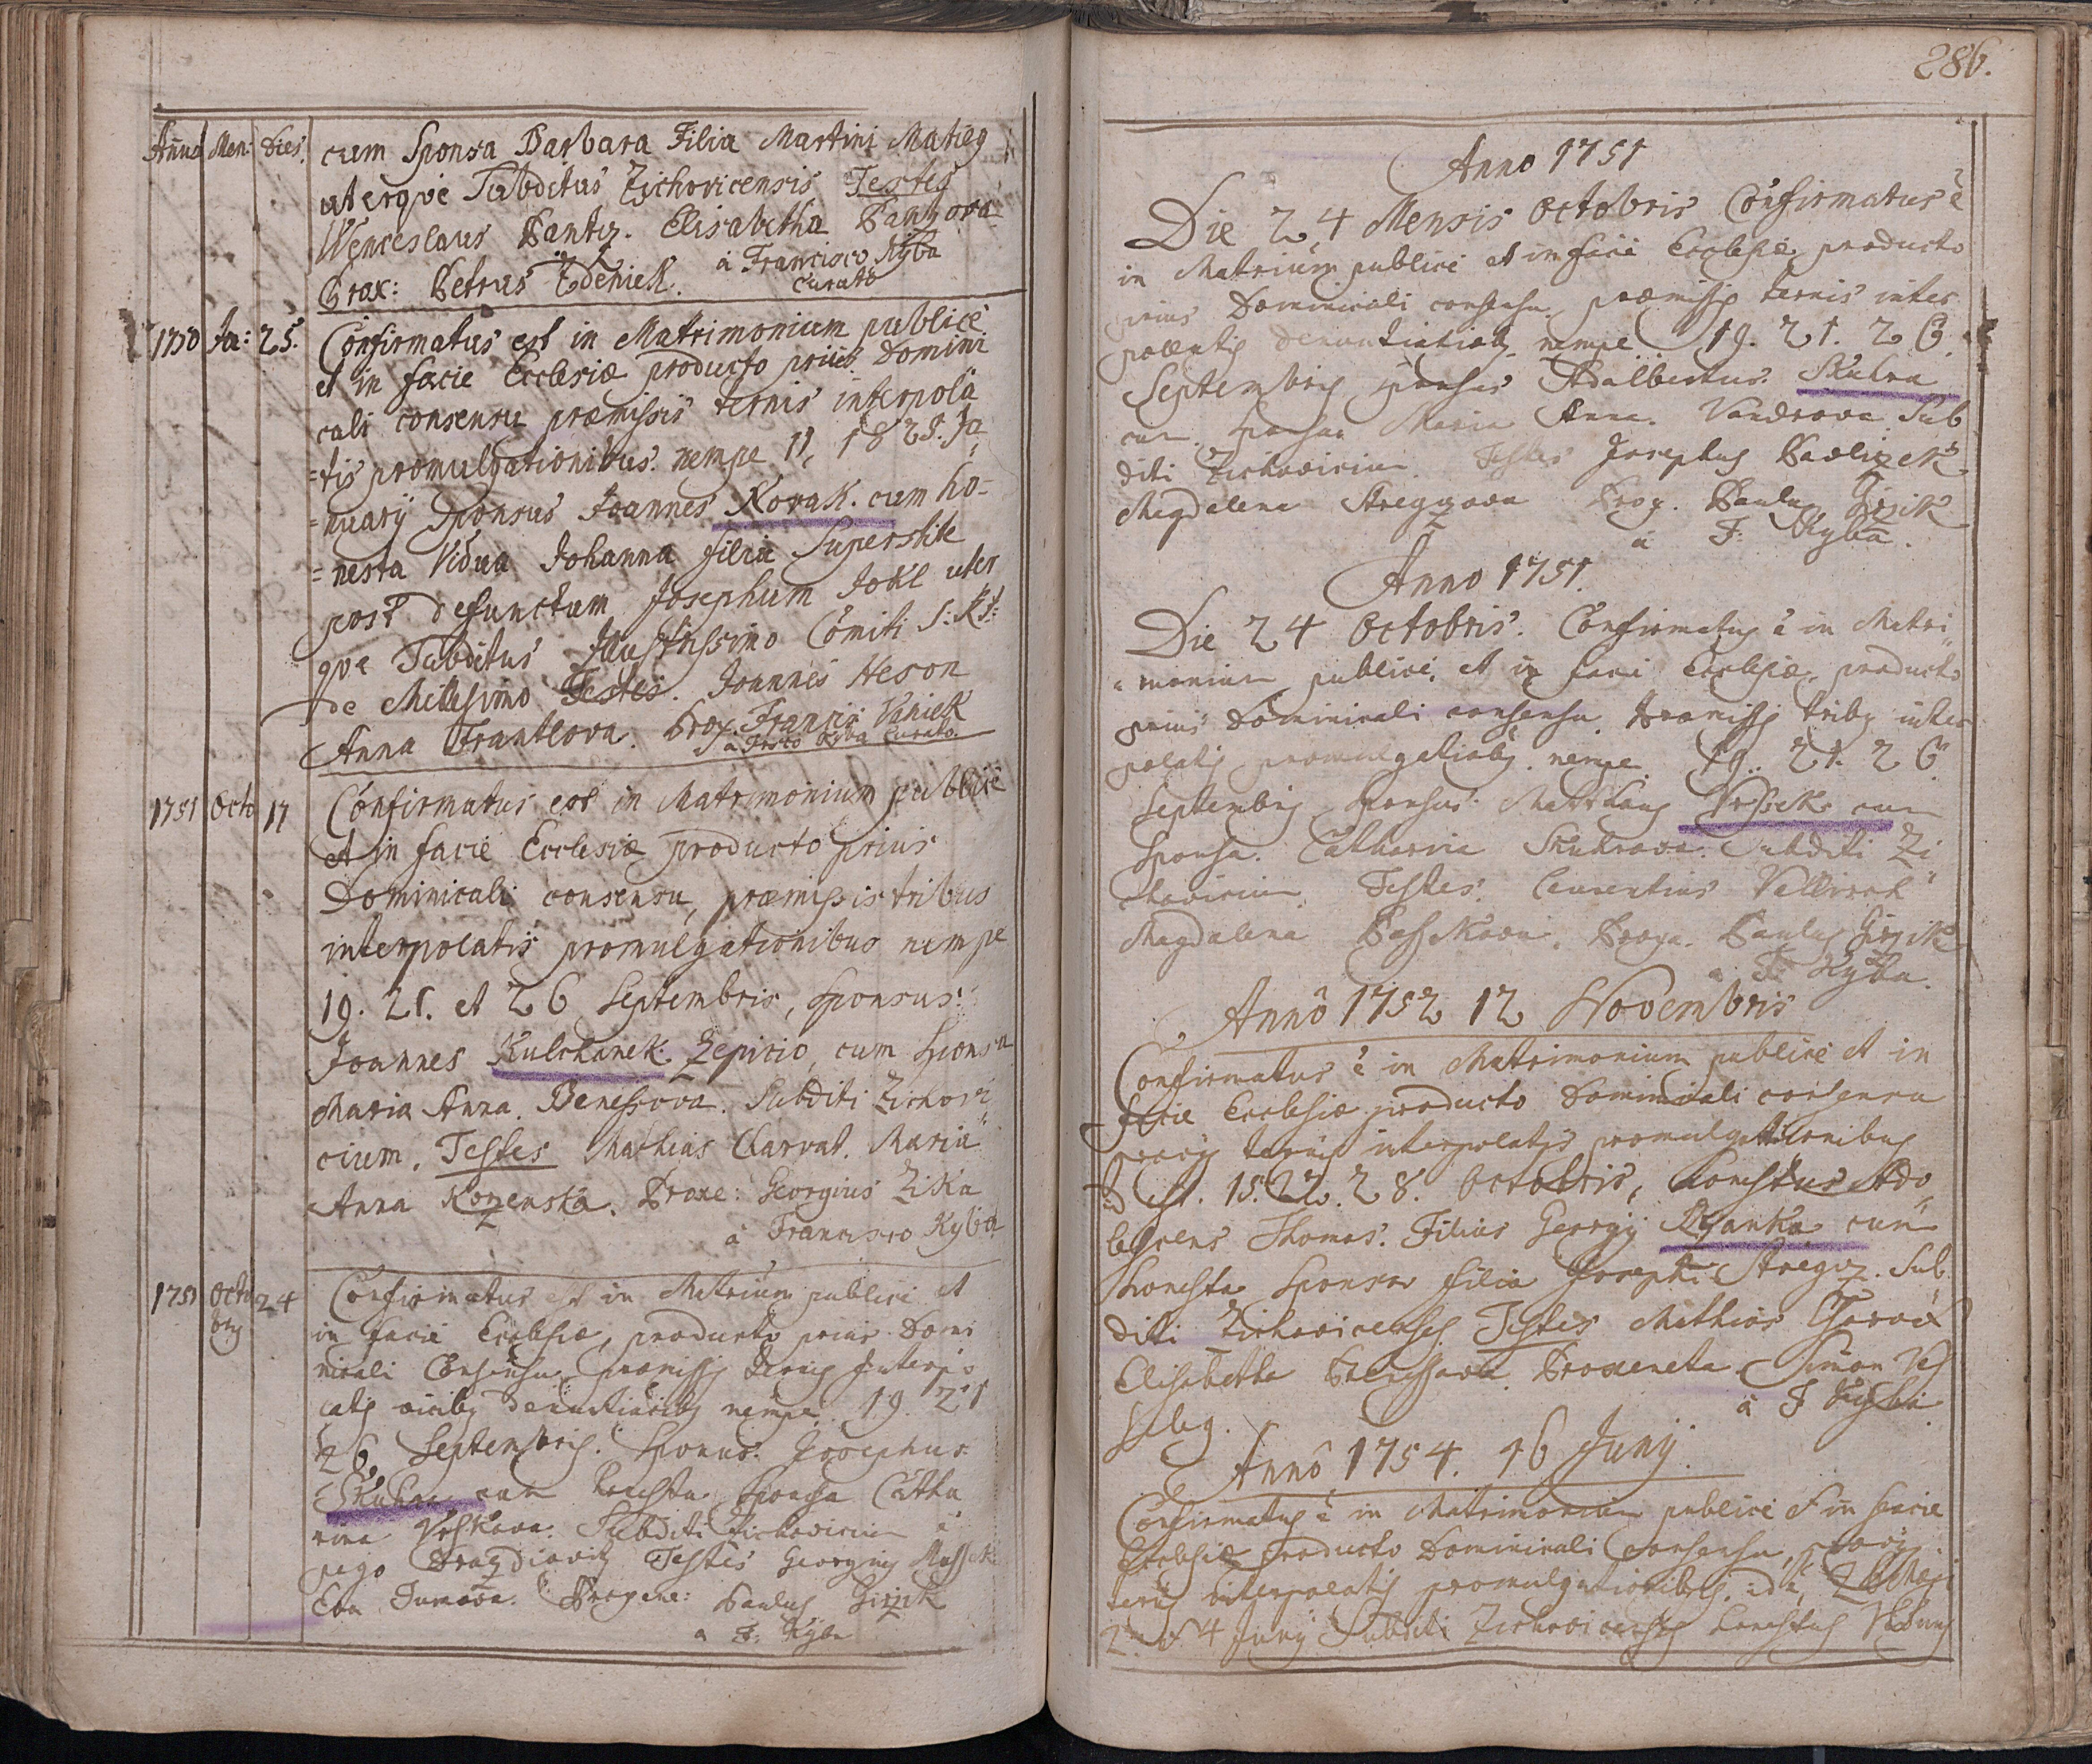 Annus Men: Dies.
cum Sponsa Barbara Filia Martini Matieg
uterqve Subditus Zichovicensis Testes
Wenceslaus Bantz. Elisabetha
Prox: Petrus Zdeniek. à Francisco Ryba
Curato
1750 Ja: 25. Confirmatus est in Matrimonium publicè
et in facie Ecclesiæ producto priùs Domini
cali consensu præmissis ternis interpola
=tis promulgationibus nempe 11, 18 25. Ja
=nuarÿ Sponsus Joannes Novak. cum ho-
=nesta Vidua Johanna filia Superstite
post defunctum Josephum Jokl uter
qve Subditus Illustrissimo Comiti S:
de Millesimo Testes. Joannes Heson
Anna Frantlova. Prox. Francis: Vaniek
à Frsco Ryba Curato.
1751 Octo 17 Confirmatus est in Matrimonium publicè
et in facie Ecclesiæ producto prius
Dominicali consensu, præmissis tribus
interpolatis promulgationibus nempe
19. 21. et 26 Septembris, Sponsus
Joannes Kulchanek Zepicio, cum Sponsa
Maria Anna. Benessova. Subditi Zichovi
cium. Testes Mathias Charvat. Maria
Anna Kozenska. Proxe: Georgius Zika
à Francisco Ryba
1751 Octo 24 Confirmatus est in Matrium publice et
bris in facie Ecclesiæ, producto prius Domi
nicali Consensu, præmissis ternis Interpo
latis vicibus denuntiatibus nempe 19. 21
26 Septembris. Sponsus. Josephus
Skuhra cum honesta Sponsa Catha
rina Subditi Zichovicium è
pago Testes Georgius
Eva Tumova. Proxene: Paulus Girzik
à F: Ryba
286.
Anno 1751
Die 24 Mensis Octobris Confirmatus è
in Matrium publice et in facie Ecclesiæ producto
prius Dominicali consensu præmissis ternis inter
polatis denuntiatiobus nempe 19. 21. 26.
Septembris Sponsus Adalbertus. Skuhra
cum Sponsa Maria Anna. Vandrova Sub
diti Zichovicium Testes Josephus Pavlizek
Magdalena Stregzova Prox. Paulus Girzik
à F: Ryba.
Anno 1751.
Die 24 Octobris. Confirmatus è in Matri
monium publice, et in facie Ecclesiæ, producto
prius Dominicali consensu. Præmissis tribus inter
polatis promulgatiobus. nempe. 19. 21. 26
Septembris Sponsus. Matthaus cum
Sponsa. Catharina Skuhrova. Subditi Zi
chovicium. Testes. Laurentius
Magdalena Proxe. Paulus Girzik
à F: Ryba.
Annô 1752 12 Novembris
Confirmatus è in Matrimonium publice et in
facie Ecclesiæ producto Dominicali consensu
prævÿs ternis interpolatis promulgationibus
id est. 15. 22. 28. Octobris, honestus Ado
lescens Thomas. Filius Georgÿ cum
honesta Sponsa filia Josephi Stregzz. Sub
diti Zichovicenses Testes Mathias Charvat
Elisabetha Proxeneta Simon Ves
selÿ. à F Ryba
Annô 1754. 16 Junÿ.
Confirmatus è in Matrimonium publice et in facie
Ecclesiæ producto Dominicali consensu, prævÿs
ternis interpolatis promulgationibus. id è,
2. et 4 Junÿ Subditi Zichovicenses honestus Viduus